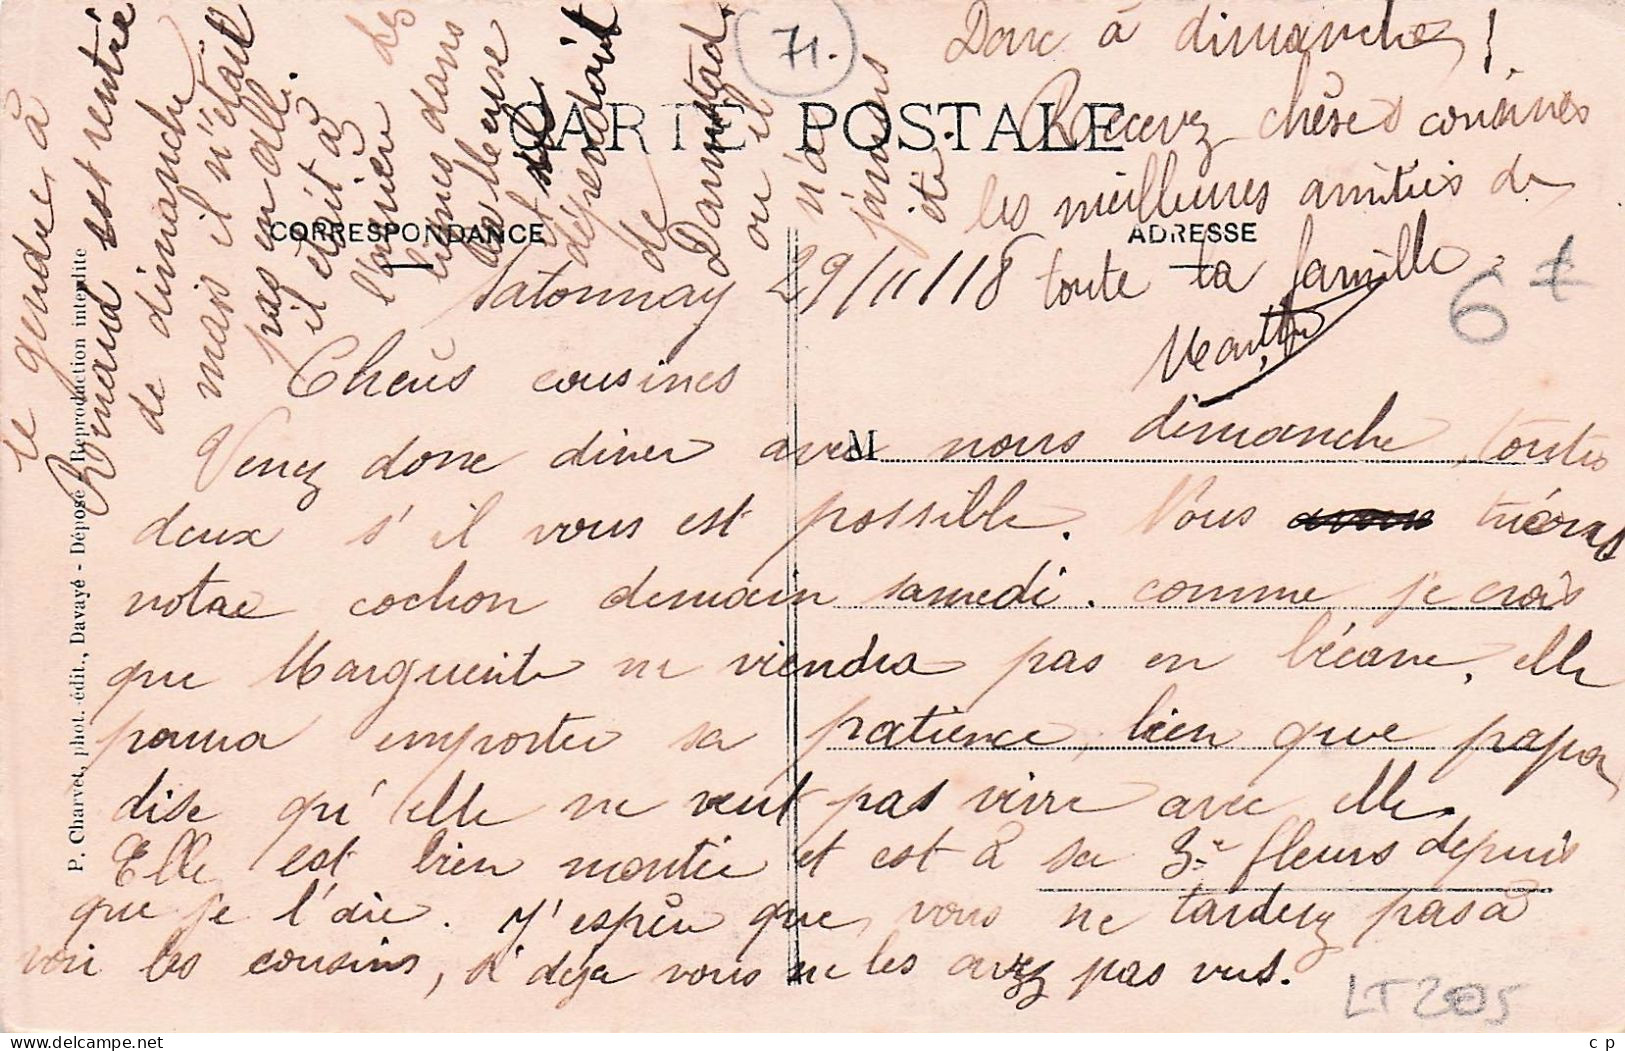 71.
CARTE POSTALE
CORRESPONDANCE
ADRESSE
P. Charvet, phot.-édit., Davayé - Déposé - Reproduction interdite
Satonnay 29/11/18
Chères cousines
Venez donc diner avec nous dimanche, toutes
deux s'il vous est possible. Nous tuerons
notre cochon demain samedi. comme je crois
que Marguerite ne viendra pas en bécane, elle
pourra emporter sa patience, bien que papa
dise qu'elle ne veut pas vivre avec elle.
Elle est bien montée et est à sa 3e fleurs depuis
que je l'ai. J'espère que vous ne tarderez pas à
voir les cousins, si déja vous ne les avez pas vus.
le gendre à
Romand est rentré
de dimanche
mais il n'était
pas en all.
il était à
l'arrière des
lignes dans
la
et
dépendait
de
Darmstad.
ou il
n'a
jamais
été.
Donc à dimanche !
Recevez chères cousines
les meilleures amitiés de
toute la famille.
M
6 €
LT 205
cp